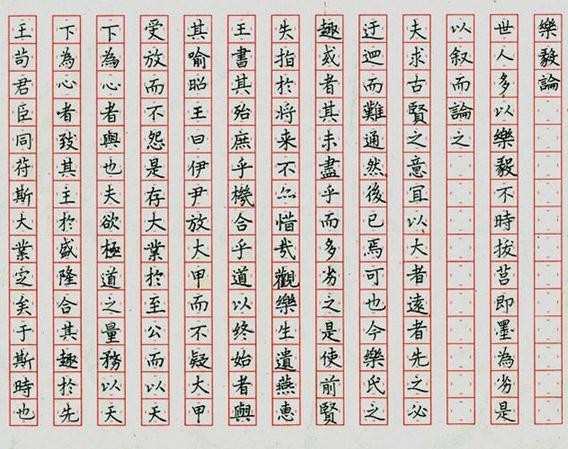 樂毅論
世人多以樂毅不時拔莒即墨為劣是
以叙而論之
夫求古賢之意宜以大者遠者先之必
迂迴而難通然後已焉可也今樂氏之
趣或者其未盡乎而多劣之是使前賢
失指於将来不亦惜哉觀樂生遺燕惠
王書其殆庶乎機合乎道以終始者與
其喻昭王曰伊尹放大甲而不疑大甲
受放而不怨是存大業於至公而以天
下為心者與也夫欲極道之量務以天
下為心者致其主於盛隆合其趣於先
王苟君臣同符斯大業定矣于斯時也